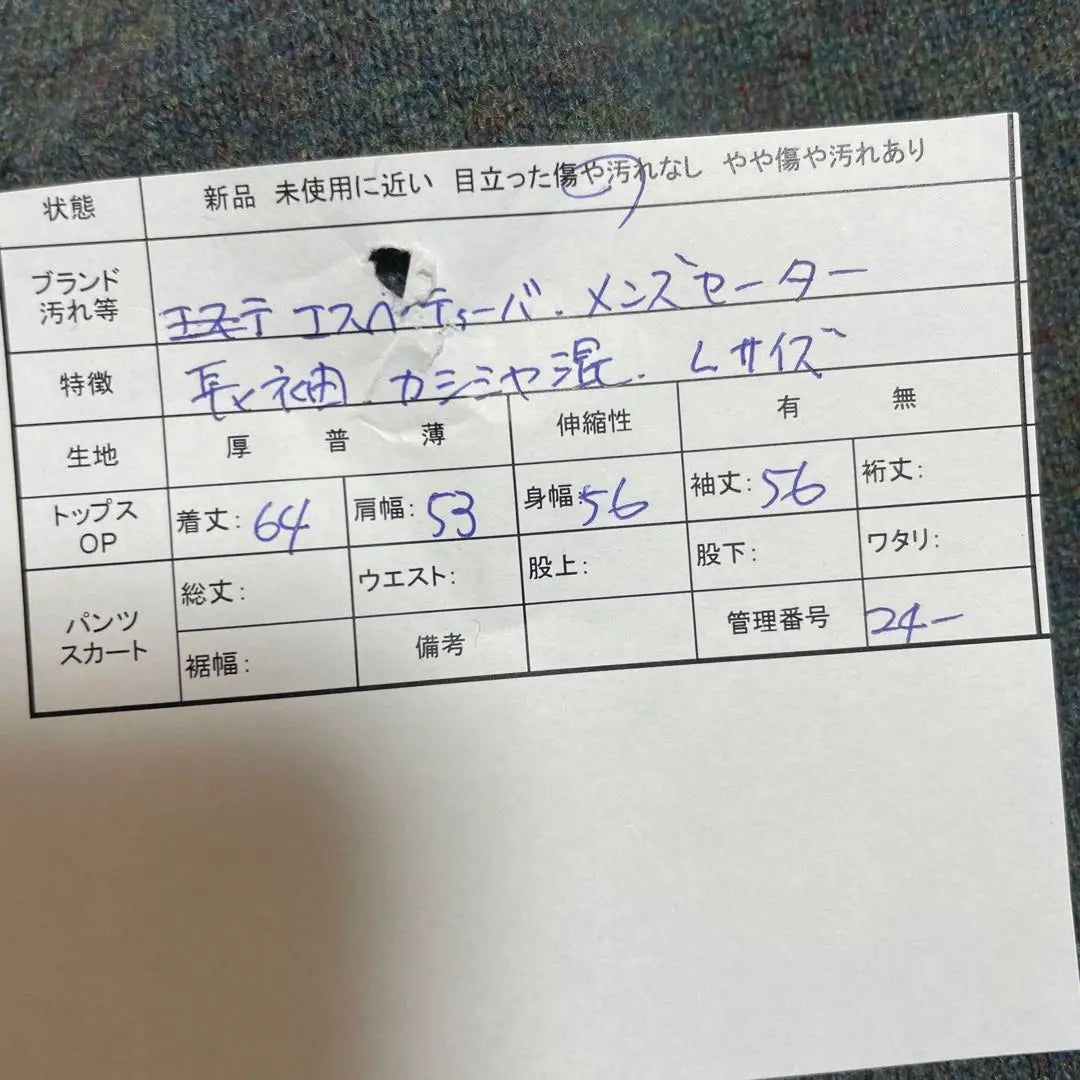 状態 新品 未使用に近い 目立った傷や汚れなし やや傷や汚れあり
ブランド
汚れ等 エステ エスペディーバ.メンズセーター
特徴 長袖 カシミヤ混. Lサイズ
生地 厚 普 薄 伸縮性 有 無
トップス
OP 着丈: 64 肩幅: 53 身幅: 56 袖丈: 56 裄丈:
パンツ
スカート 総丈: ウエスト: 股上: 股下: ワタリ:
裾幅: 備考 管理番号 24-